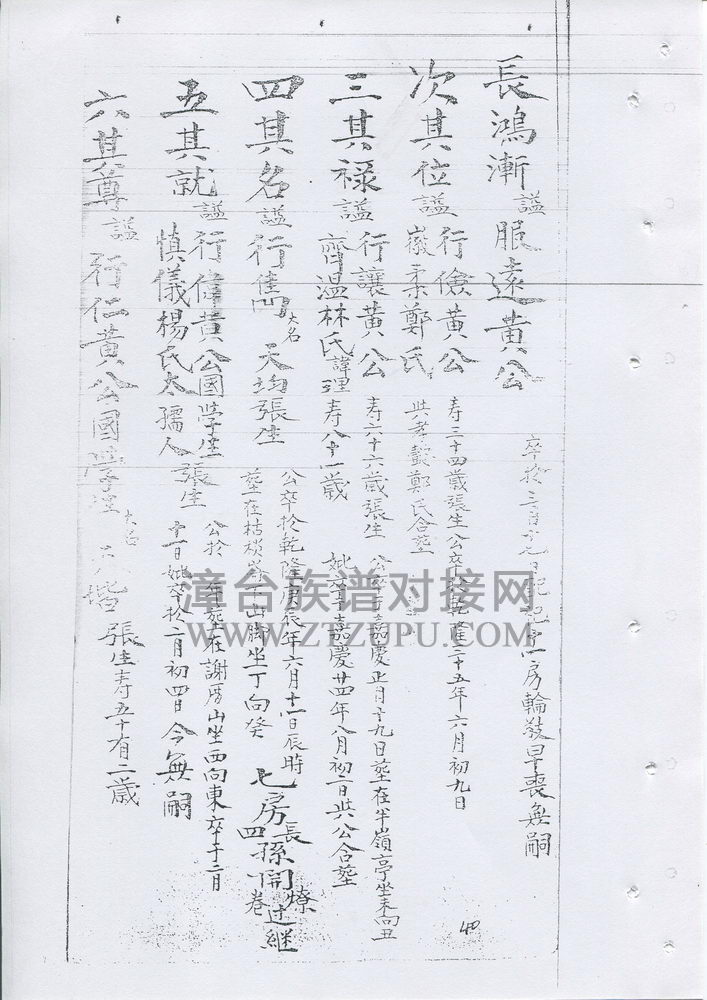 長鴻漸 謚 服遠黃公 卒於三月十九日 房輪 早喪無嗣
次其位 謚 行儉黃公 壽三十四歲張生公卒於乾隆三十五年六月初九日
徽柔鄭氏 共孝 鄭氏合塟
三其祿 謚 行讓黃公 壽六十六歲張生 公卒于嘉慶 正月十九日塟在半嶺亭坐未向丑
齊溫林氏 諱理 壽八十一歲 妣卒于嘉慶廿四年八月初二日共公合塟
四其名 謚 行雋 大名 天均 張生 公卒於乾隆庚辰年六月十一日辰時
塟在枯 山脚坐丁向癸 七房長四孫開燎 卷 过継
五其就 謚 行偉黃公國學生 張生 公於 年塟在謝厝山坐西向東卒于二月
慎儀楊氏太孺人 十一日妣卒於二月初四日 今無嗣
六其尊 謚 行仁黃公國學生 大名 天堦 張生壽五十有二歲
漳台族谱对接网
WWW.ZTZUPU.COM
40